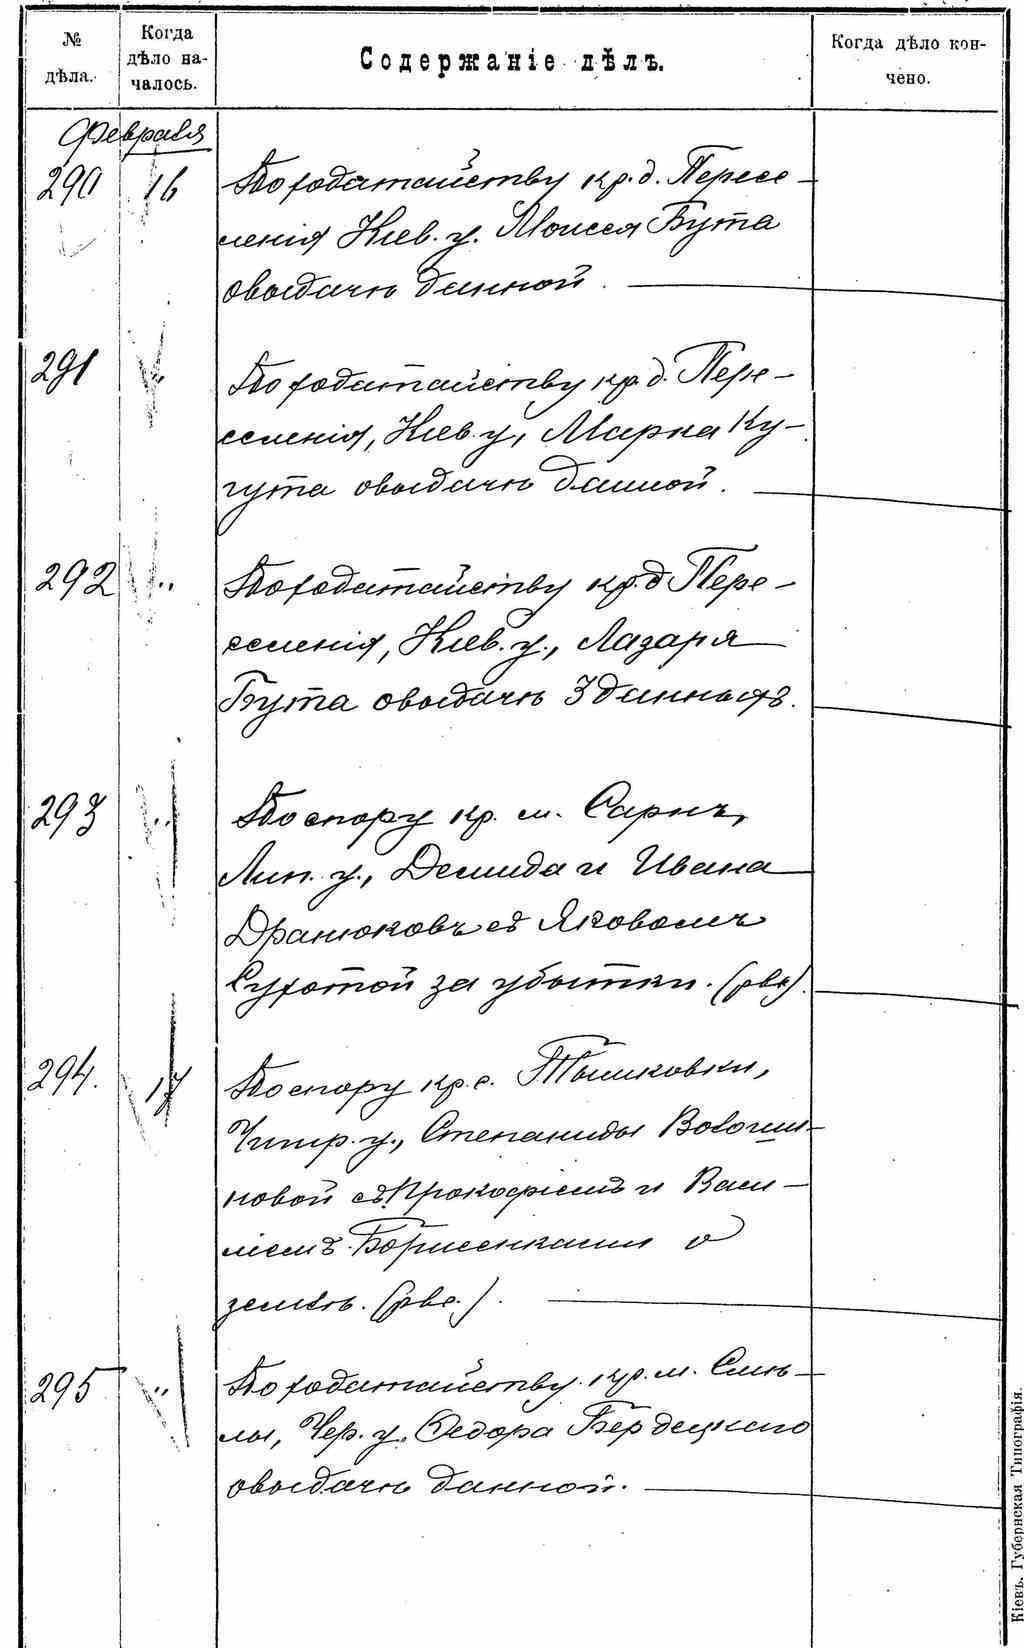 № дѣла.
Когда дѣло на-
чалось.
Содержаніе дѣлъ.
Когда дѣло кон-
чено.
Февраля
290 16 По ходатайству кр. д. Пересе-
ленія Кіев. у. Моисея Бута
о выдачѣ данной.
291 " По ходатайству кр. д. Пере-
селенія, Кіев. у., Марка Ку-
гута о выдачѣ данной.
292 " По ходатайству кр. д. Пере-
селенія, Кіев. у., Лазаря
Бута о выдачѣ 3 данныхъ.
293 " По спору кр. м. Сарнъ,
Лип. у., Демида и Ивана
Дранюковъ съ Яковомъ
Сухотой за убытки. (рвс).
294. 17 По спору кр. с. Тышковки,
Чигир. у., Степаниды Волошы-
новой съ Прокофіемъ и Васи-
ліемъ Борисенками о
землѣ. (рвс.).
295 " По ходатайству кр. м. Смѣ-
лы, Чер. у. Ѳедора Бердецкаго
о выдачѣ данной.
Кіевъ. Губернская Типографія.